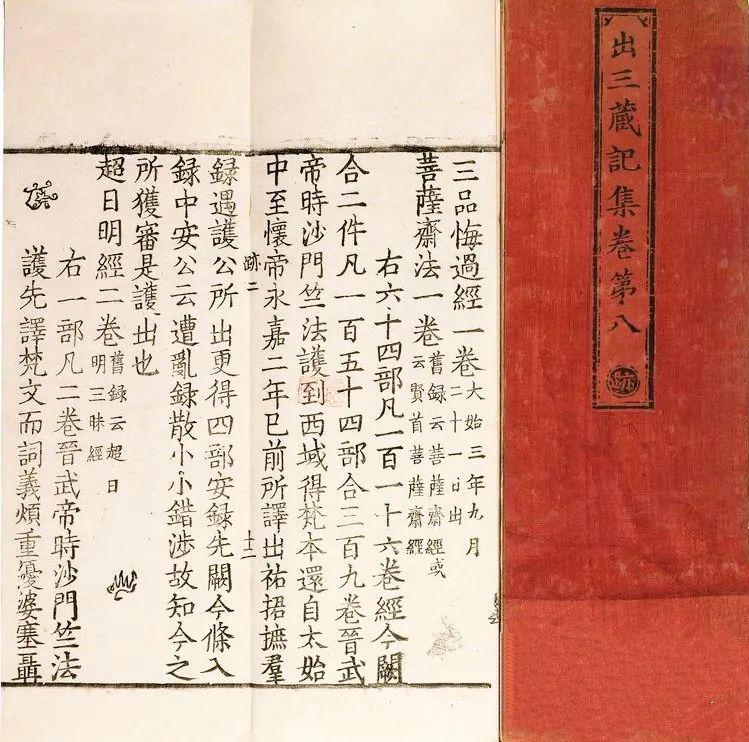 出三藏記集卷第八 跡
三品悔過經一卷大始三年九月二十一日出
菩薩齋法一卷舊録云菩薩齋經或云賢首菩薩齋經
右六十四部凡一百一十六卷經今闕
合二件凡一百五十四部合三百九卷晉武
帝時沙門竺法護到西域得梵本還自太始
中至懷帝永嘉二年已前所譯出祐捃摭羣
跡二 十二
録遇護公所出更得四部安録先闕今條入
録中安公云遭亂録散小小錯渉故知今之
所獲審是護出也
超日明經二卷舊録云超日明三昧經
右一部凡二卷晉武帝時沙門竺法
護先譯梵文而詞義煩重優婆塞聶